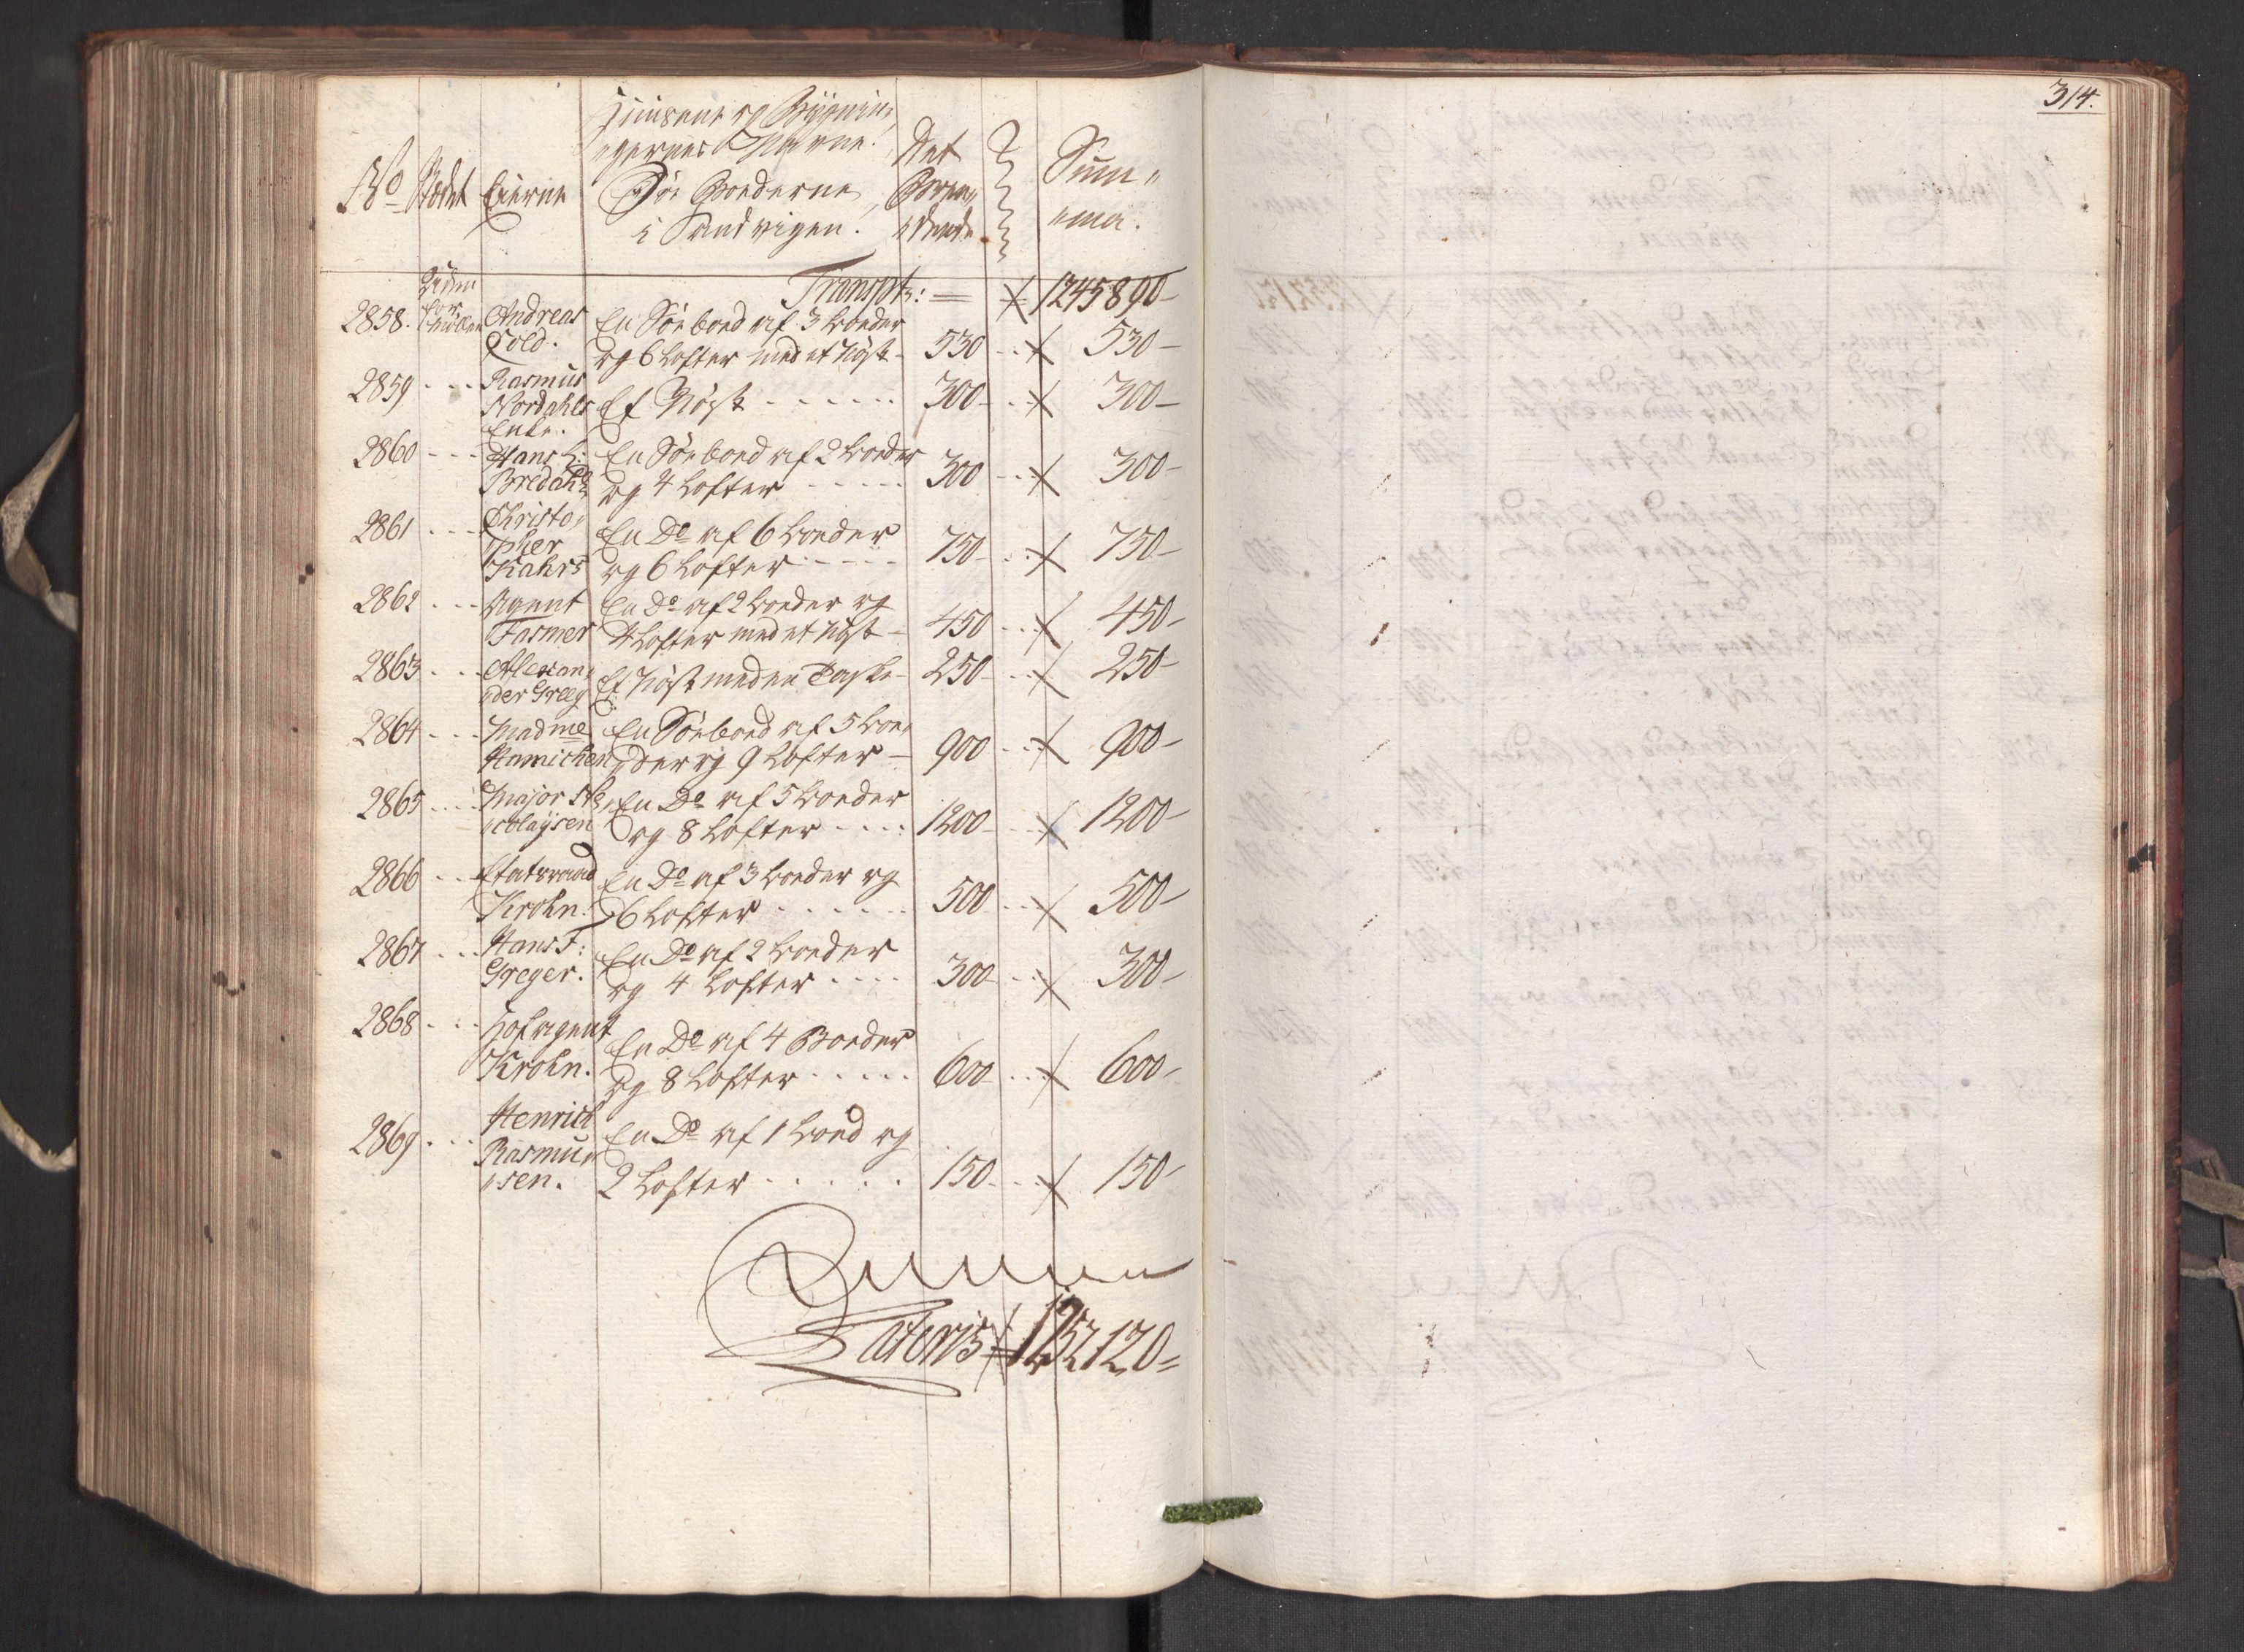 314.
Huusene og Bygnin,
gernes Navne.
No Stædet Eierne Söe Boederne i Sandvigen. Det Boren, dende Sum, ma.
Transpt: 1245890-
2858. Uden for Andreas Cold. En Söeboed af 3 boeder
og 6 Lofter med et Nöst- 530 530-
2859 Rasmus Nordahls Enke. Et Nöst 300- 300-
2860 Hans H: Bredahl En Söeboed af 2 boeder
og 4 Lofter 300 300-
2861 Christo, pher Kahrs En Do af 6 boeder
og 6 Lofter 750- 750-
2862 Agent Fasmer En Do af 2 boeder og
4 Lofter med et Nöst- 450 450-
2863 Alexan, der Greeg Et Nöst med en 250- 250-
2864 Madme Hamichen En Söeboed af 5 boe,
der og 9 Lofter - 900 900-
2865 Major Ni, colaysen En Do af 5 boeder
og 8 Lofter 1200- 1200-
2866 Etatsraad Krohn. En Do af 3 boeder og
6 Lofter 500 500-
2867 Hans F: Greger. En Do af 2 boeder
og 4 Lofter 300- 300-
2868 Hofagent Krohn. En Do af 4 Boeder
og 8 Lofter 600 600-
2869 Henrich Rasmu, sen. En Do af 1 boed og
2 Lofter 150- 150-
Lateris 1252120=